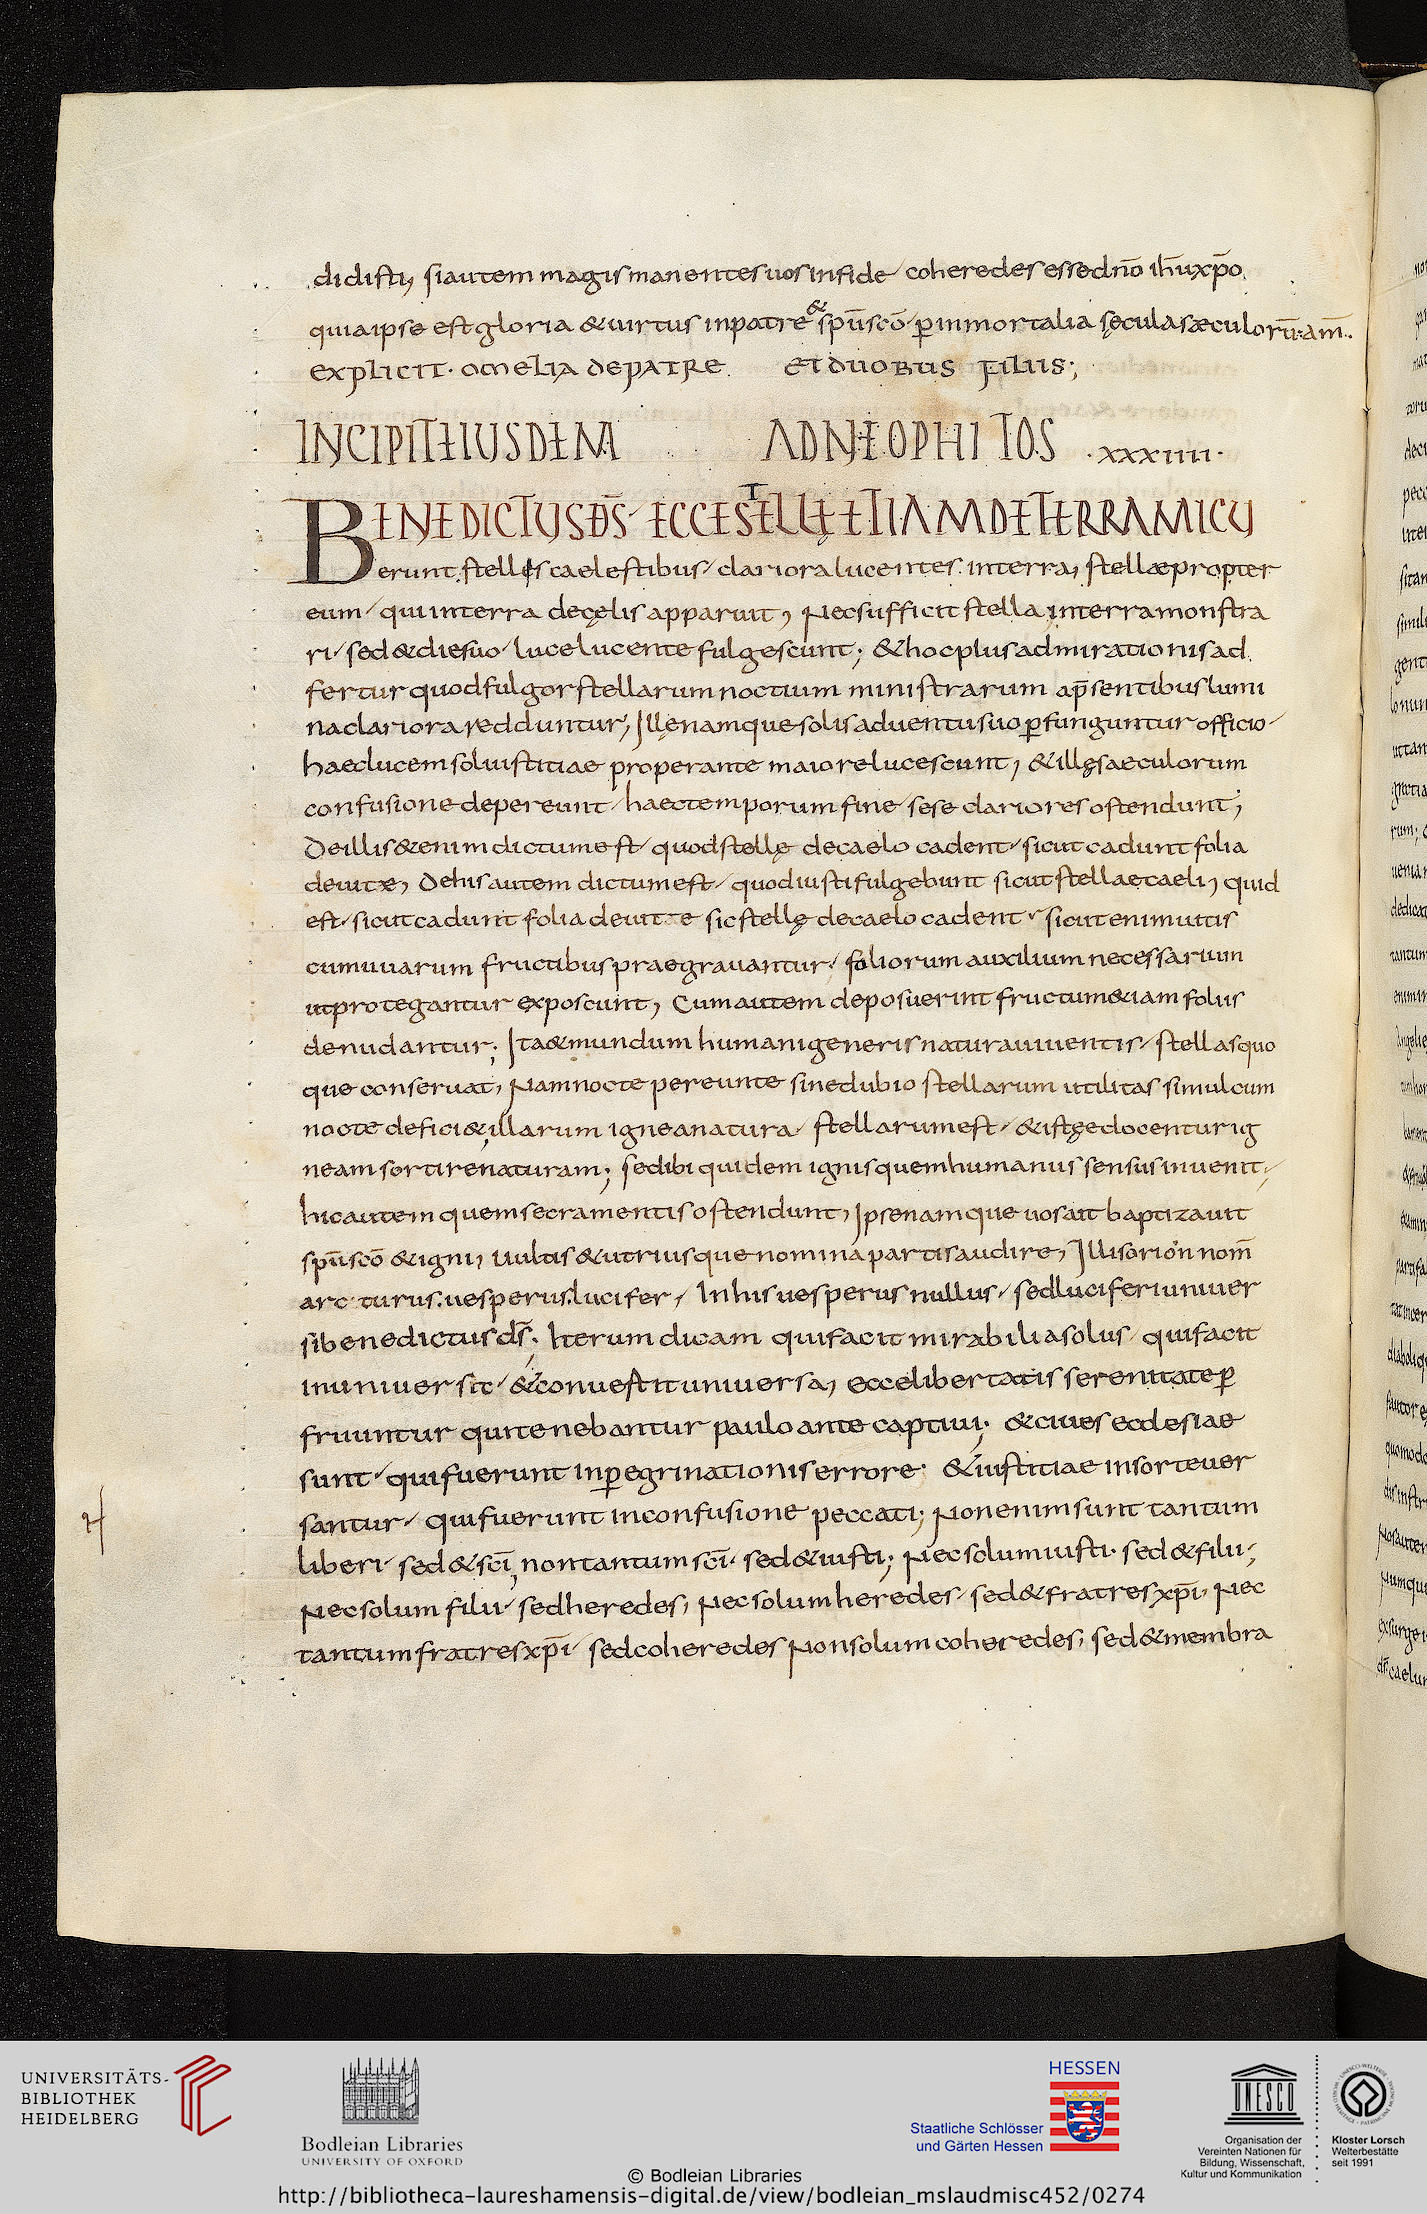 didisti, si autem magis manentes uos in fide coheredes esse dnō ihū xpō.
quia ipse est gloria & uirtus in patre & spū scō p̄ inmortalia sęcula sæculorū: am̄.
explicit. omelia de patre et duobus filiis;
INCIPIT EIUSDEM AD NEOPHITOS .xxxiiii.
BENEDICTUS DS̄ ECCE STELLĘ ETIAM DE TERRA MICU
erunt. stellęs caelestibus clariora lucentes. in terra, stellæ propter
eum qui in terra de cęlis apparuit, Nec sufficit stella in terra monstra
ri sed & die suo luce lucente fulgescunt; & hoc plus admirationis ad
fertur quod fulgor stellarum noctium ministrarum a p̄sentibus lumi
na clariora redduntur, Illę namque solis aduentu suo p̄funguntur officio
haec lucem sol iustitiae properante maiore lucescunt, & illęs aeculorum
confusione depereunt haec temporum fine sese clariores ostendunt;
De illis &enim dictum est quod stellę de caelo cadent sicut cadunt folia
de uite, De his autem dictum est quod iusti fulgebunt sicut stellae caeli, quid
est sicut cadunt folia de uite sic stellę de caelo cadent sicut enim uitis
cum uuarum fructibus praegrauantur foliorum auxilium necessarium
ut protegantur exposcunt, Cum autem deposuerint fructum &iam foliis
denudantur; Ita & mundum humani generis natura uiuentis stellas quo
que conseruat, Nam nocte pereunte sine dubio stellarum utilitas simul cum
nocte defici& illarum ignea natura stellarum est & istęe docentur ig
neam sortire naturam; sed ibi quidem ignis quem humanus sensus inuenit
hic autem quem secramentis ostendunt, Ipse namque uos ait baptizauit
spū scō & igni, Uultis & utriusque nomina partis audire, Illis orion nom̄
arcturus. uesperus. lucifer, In his uesperus nullus sed luciferi uniuer
si benedictus ds̄; Iterum dicam qui facit mirabilia solus qui facit
inuniuersit & conuestit uniuersa, ecce libertatis serenitate p̄
fruuntur qui tenebantur paulo ante captiui; & ciues ecclesiae
sunt qui fuerunt in p̄egrinationis errore & iustitiae in sorte uer
santur qui fuerunt in confusione peccati; Non enim sunt tantum
liberi sed & scī, non tantum scī sed & iusti; Nec solum iusti sed & filii,
Nec solum filii sed heredes, Nec solum heredes sed & fratres xp̄i, Nec
tantum fratres xp̄i sed coheredes Non solum coheredes, sed & membra
UNIVERSITÄTS-
BIBLIOTHEK
HEIDELBERG
Bodleian Libraries
UNIVERSITY OF OXFORD
HESSEN
Staatliche Schlösser
und Gärten Hessen
UNESCO
Organisation der
Vereinten Nationen für
Bildung, Wissenschaft,
Kultur und Kommunikation
Kloster Lorsch
Welterbestätte
seit 1991
© Bodleian Libraries
http://bibliotheca-laureshamensis-digital.de/view/bodleian_mslaudmisc452/0274